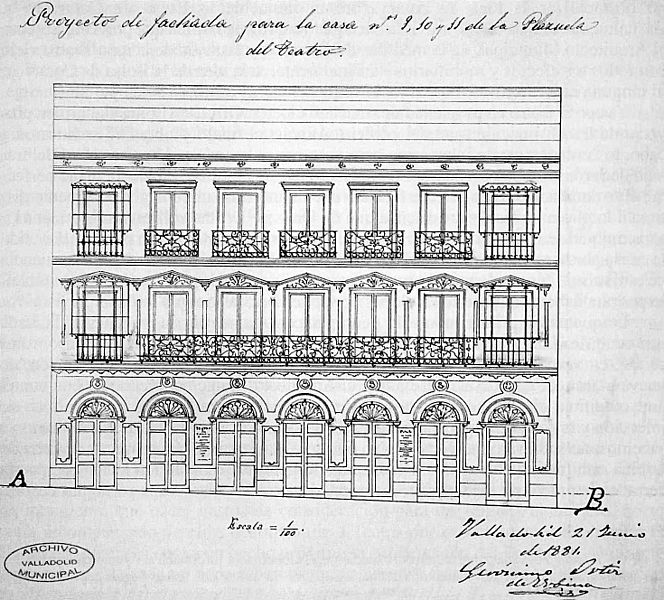 Proyecto de fachada para la casa nos. 9, 10 y 11 de la Plazuela
del Teatro.
A
B.
Escala = 1/100.
Valladolid 21 Junio
de 1881.
Gerónimo Ortiz
de Urbina
ARCHIVO
VALLADOLID
MUNICIPAL